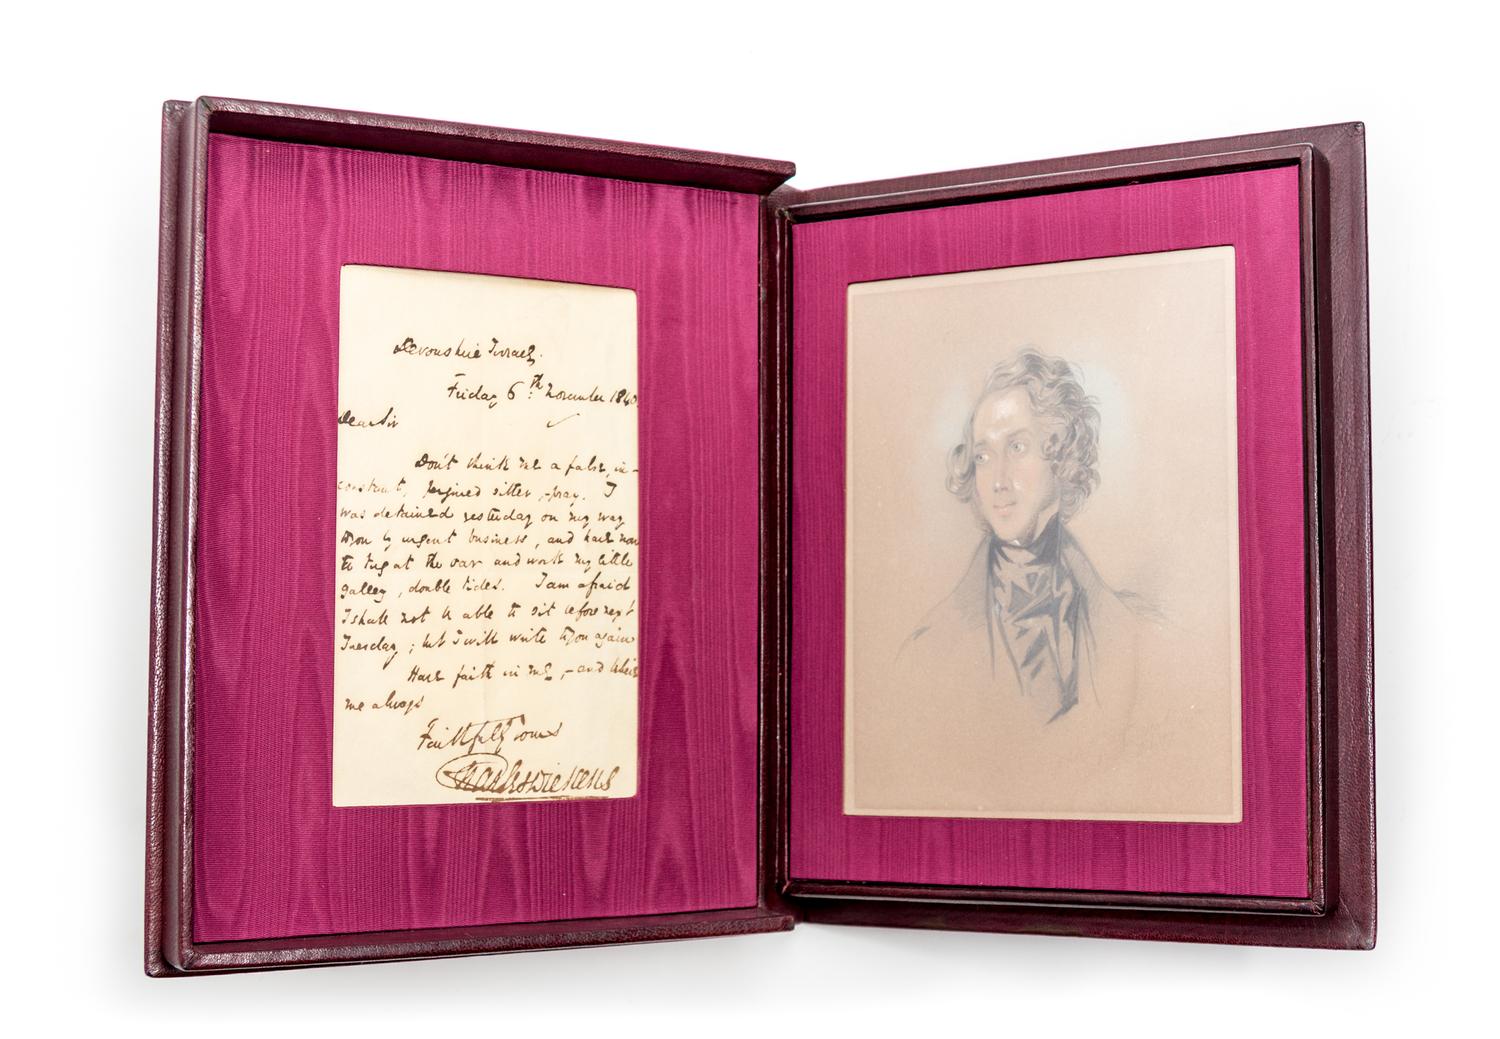 Devonshire Terrace.
Friday 6th November 1840.
Dear Sir
Don't think me a false, in-
constant, perjured sitter, - pray. I
was detained yesterday on my way
to you by urgent business, and have now
to tug at the oar and work my little
galley, double tides. I am afraid
I shall not be able to sit before next
Tuesday; but I will write to you again
Have faith in me, - and believe
me always
Faithfully Yours
Charles Dickens